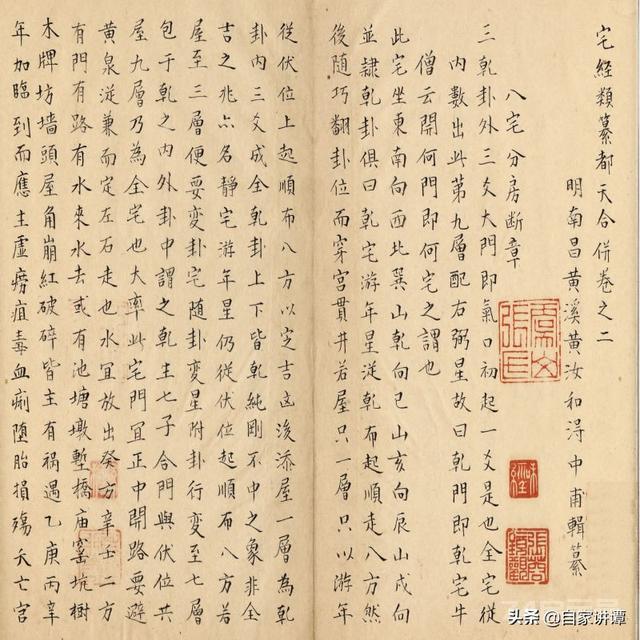 宅經類纂都天合併卷之二
明南昌黃溪黃汝和淂中甫輯纂
八宅分房断章
三乾卦外三爻大門即氣口初起一爻是也全宅從
内數出此第九層配右弼星故曰乾門即乾宅牛
僧云開何門即何宅之謂也
此宅坐東南向西北巽山乾向巳山亥向辰山戌向
並隷乾卦俱曰乾宅游年星從乾布起順走八方然
後随巧翻卦位而穿宫貫井若屋只一層只以游年
從伏位上起順布八方以定吉凶浚添屋一層為乾
卦内三爻成全乾卦上下皆乾純剛不中之象非全
吉之兆亦名静宅游年星仍從伏位起順布八方若
屋至三層便要變卦宅随卦變星附卦行變至七層
包于乾之内外卦中謂之乾主七子合門與伏位共
屋九層乃為全宅也大率此宅門冝正中開路要避
黄泉淀兼而定左右走也水宜放出癸方辛壬二方
有門有路有水來水去或有池塘墩塹橋庙窑坑樹
木牌坊墻頭屋角崩紅破碎皆主有祸遇乙庚丙辛
年加臨到而應主虚癆疽毒血痢堕胎損殤夭亡宫
头条 @自家讲谭